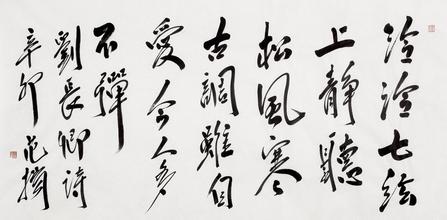 泠泠七弦
上靜聽
松風寒
古調雖自
愛今人多
不彈
劉長卿詩
辛卯